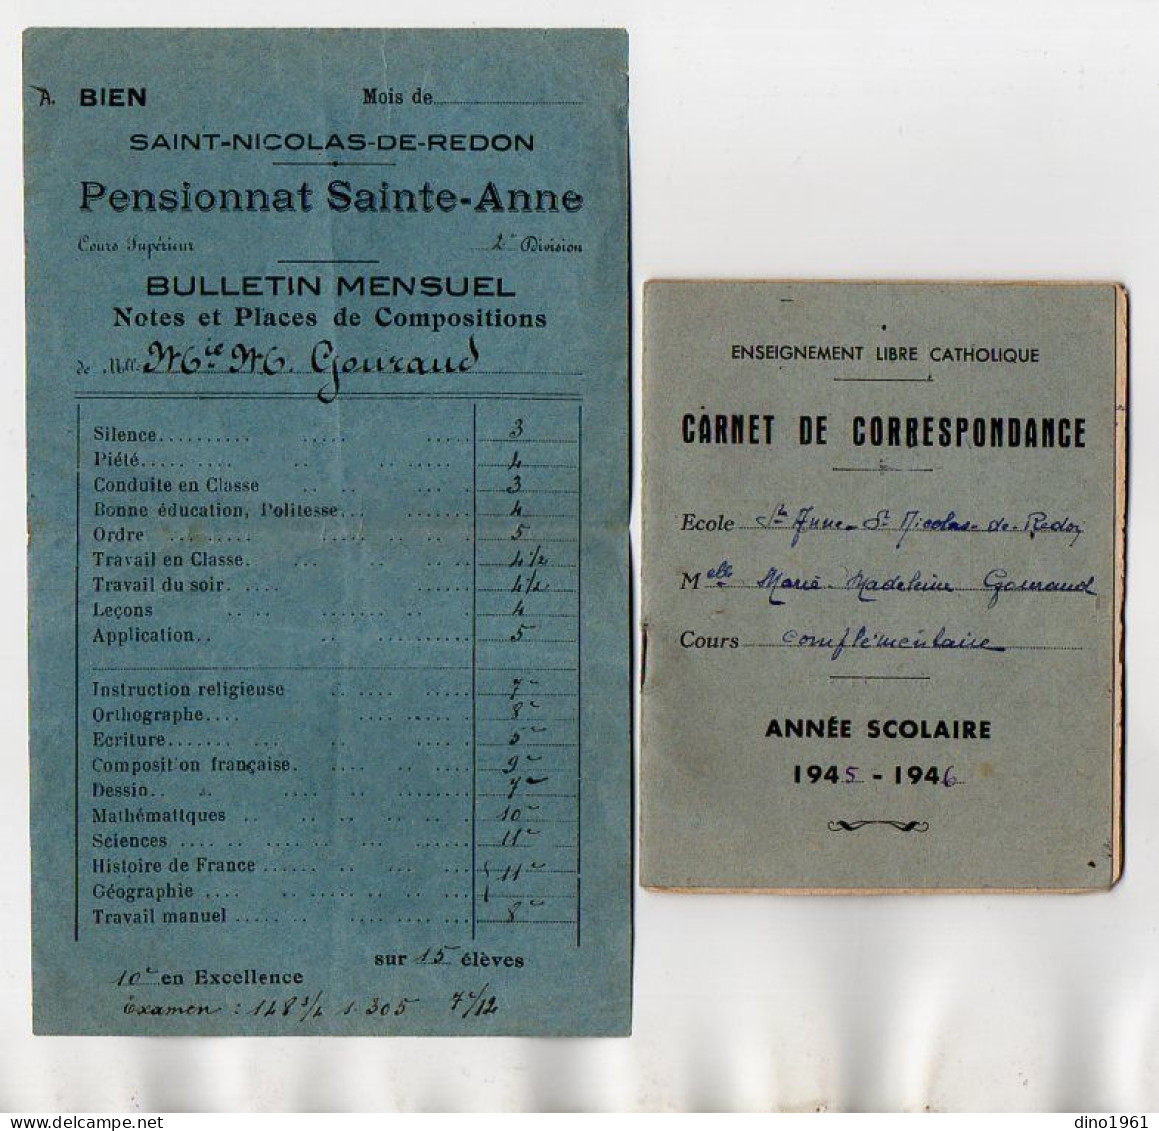 A. BIEN Mois de
SAINT-NICOLAS-DE-REDON
Pensionnat Sainte-Anne
Cours Supérieur 2e Division
BULLETIN MENSUEL
Notes et Places de Compositions
de Mlle Mie M. Gouraud
Silence 3
Piété 4
Conduite en Classe 3
Bonne éducation, Politesse 4
Ordre 5
Travail en Classe 4 1/2
Travail du soir 4 1/2
Leçons 4
Application 5
Instruction religieuse 7e
Orthographe 8e
Ecriture 5e
Composition française 9e
Dessin 7e
Mathématiques 10e
Sciences 11e
Histoire de France 11e
Géographie
Travail manuel 8e
sur 15 élèves
10e en Excellence
Examen : 148 3/4 s. 305 7e/12
ENSEIGNEMENT LIBRE CATHOLIQUE
CARNET DE CORRESPONDANCE
Ecole Ste Anne St Nicolas-de-Redon
Melle Marie-Madeleine Gouraud
Cours Complémentaire
ANNÉE SCOLAIRE
1945 - 1946
dino1961